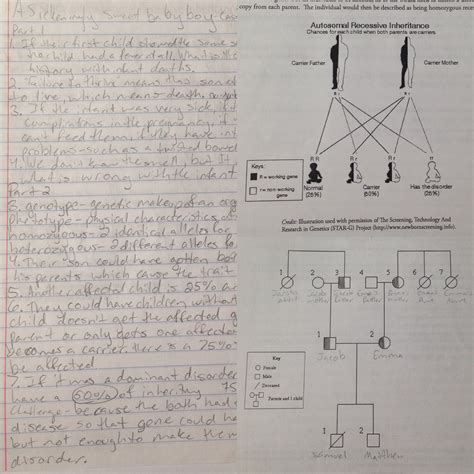 A Sickeningly Sweet baby boy Case
Part 1
1. If their first child showed the same s
the child had a fever at all. What is the
history with infant deaths.
2. failure to thrive means that
to live which means death.
3. If the infant was very sick, if
complications in the pregnancy, if
can't feed them, if they have in
problems-such as a twisted bowel
4. We don't know the smell, but it
what is wrong with the infant
Part 2
3. genotype-genetic makeup of an org
Phenotype-physical characteristics
homozygous-2 identical alleles for
heterozygous-2 different alleles fo
4. Their son could have gotten bot
his parents which cause the trait
5. Another affected child is 25%
6. They could have children withou
child doesn't get the affected g
parent or only gets one affecte
becomes a carrier. there is a 75%
be affected
7. If it was a dominant disorde
have a 50% of inheriting 75
Challenge-because the both had
disease so that gene could ha
but not enough to make the m
disorder.
copy from each parent. The individual would then be described as being homozygous rece
Autosomal Recessive Inheritance
Chances for each child when both parents are carriers
Carrier Father
Carrier Mother
R r
R r
Keys:
R = working gene
r = non-working gene
R R
R r
R r
r r
Normal
(25%)
Carrier
(50%)
Has the disorder
(25%)
Credit: Illustration used with permission of The Screening, Technology And
Research in Genetics (STAR-G) Project (http://www.newbornscreening.info).
1 2 3 4 5 6 7
Jacob's
Aunt
Jacob's
Mother
Jacob's
Father
Emma's
Father
Emma's
Mother
Emma's
Aunt
Emma's
Aunt
1
2
Jacob
Emma
Key
Female
Male
Deceased
Parents and 1 child
1
2
Samuel
Matthew